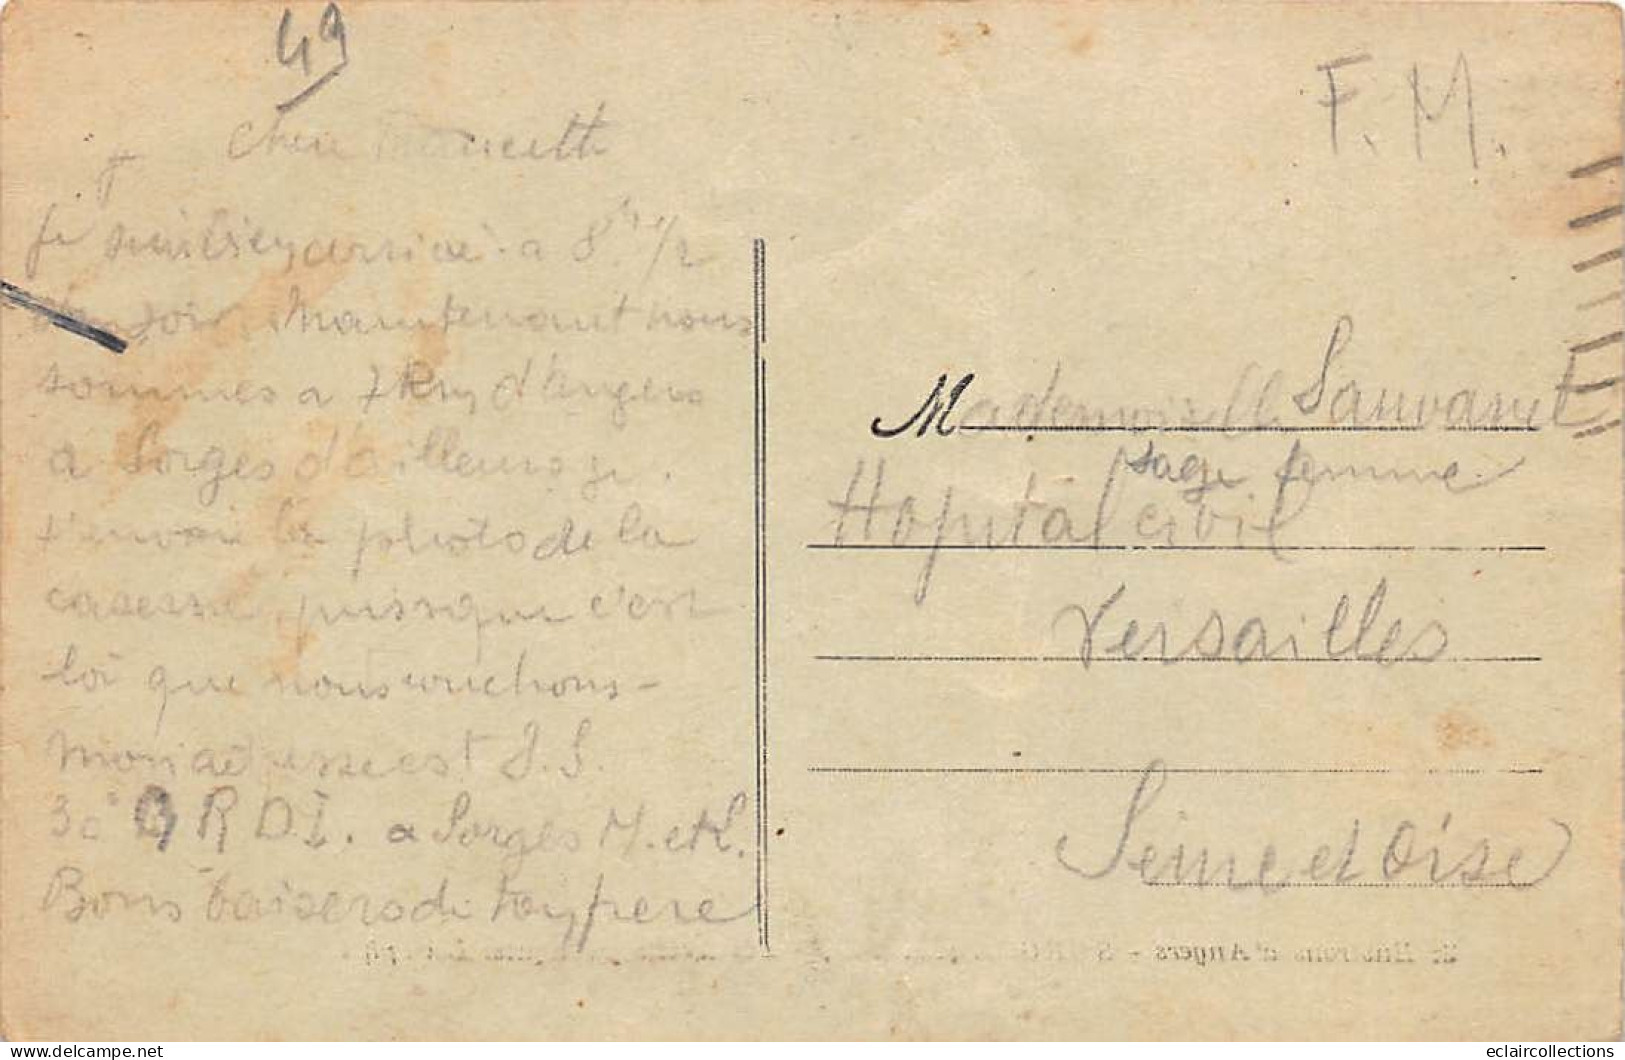 49
F. M.
Chere
Je suis bien arrivé a 8h 1/2
du soir. Maintenant nous
sommes a 7 km d'Angers
a Sorges d'ailleurs je
t'envoi la photo de la
caserne puisque c'est
loi que nous couchons -
Mon adresse est S. S.
3e R D I. a Sorges M. et L.
Bons baisers de ton pere
Mademoiselle Sauvanet
sage femme
Hopital civil
Versailles
Seine et Oise
Environs d'Angers -
eclaircollections